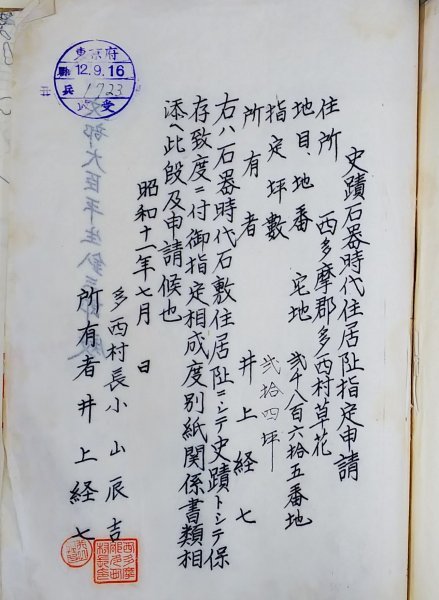 史蹟石器時代住居阯指定申請
住所 西多摩郡多西村草花
地目、地番 宅地 弐千八百六拾五番地
指定坪数 弐拾四坪
所有者 井上経七
右ハ石器時代石敷住居阯ニシテ史蹟トシテ保
存致度ニ付御指定相成度別紙関係書類相
添ヘ此段及申請候也
昭和十一年七月 日
多西村長小山辰吉
所有者井上経七
東京府
12.9.16
兵 1723
受
部大臣平生釟三郎
西多摩
郡多西
村長印